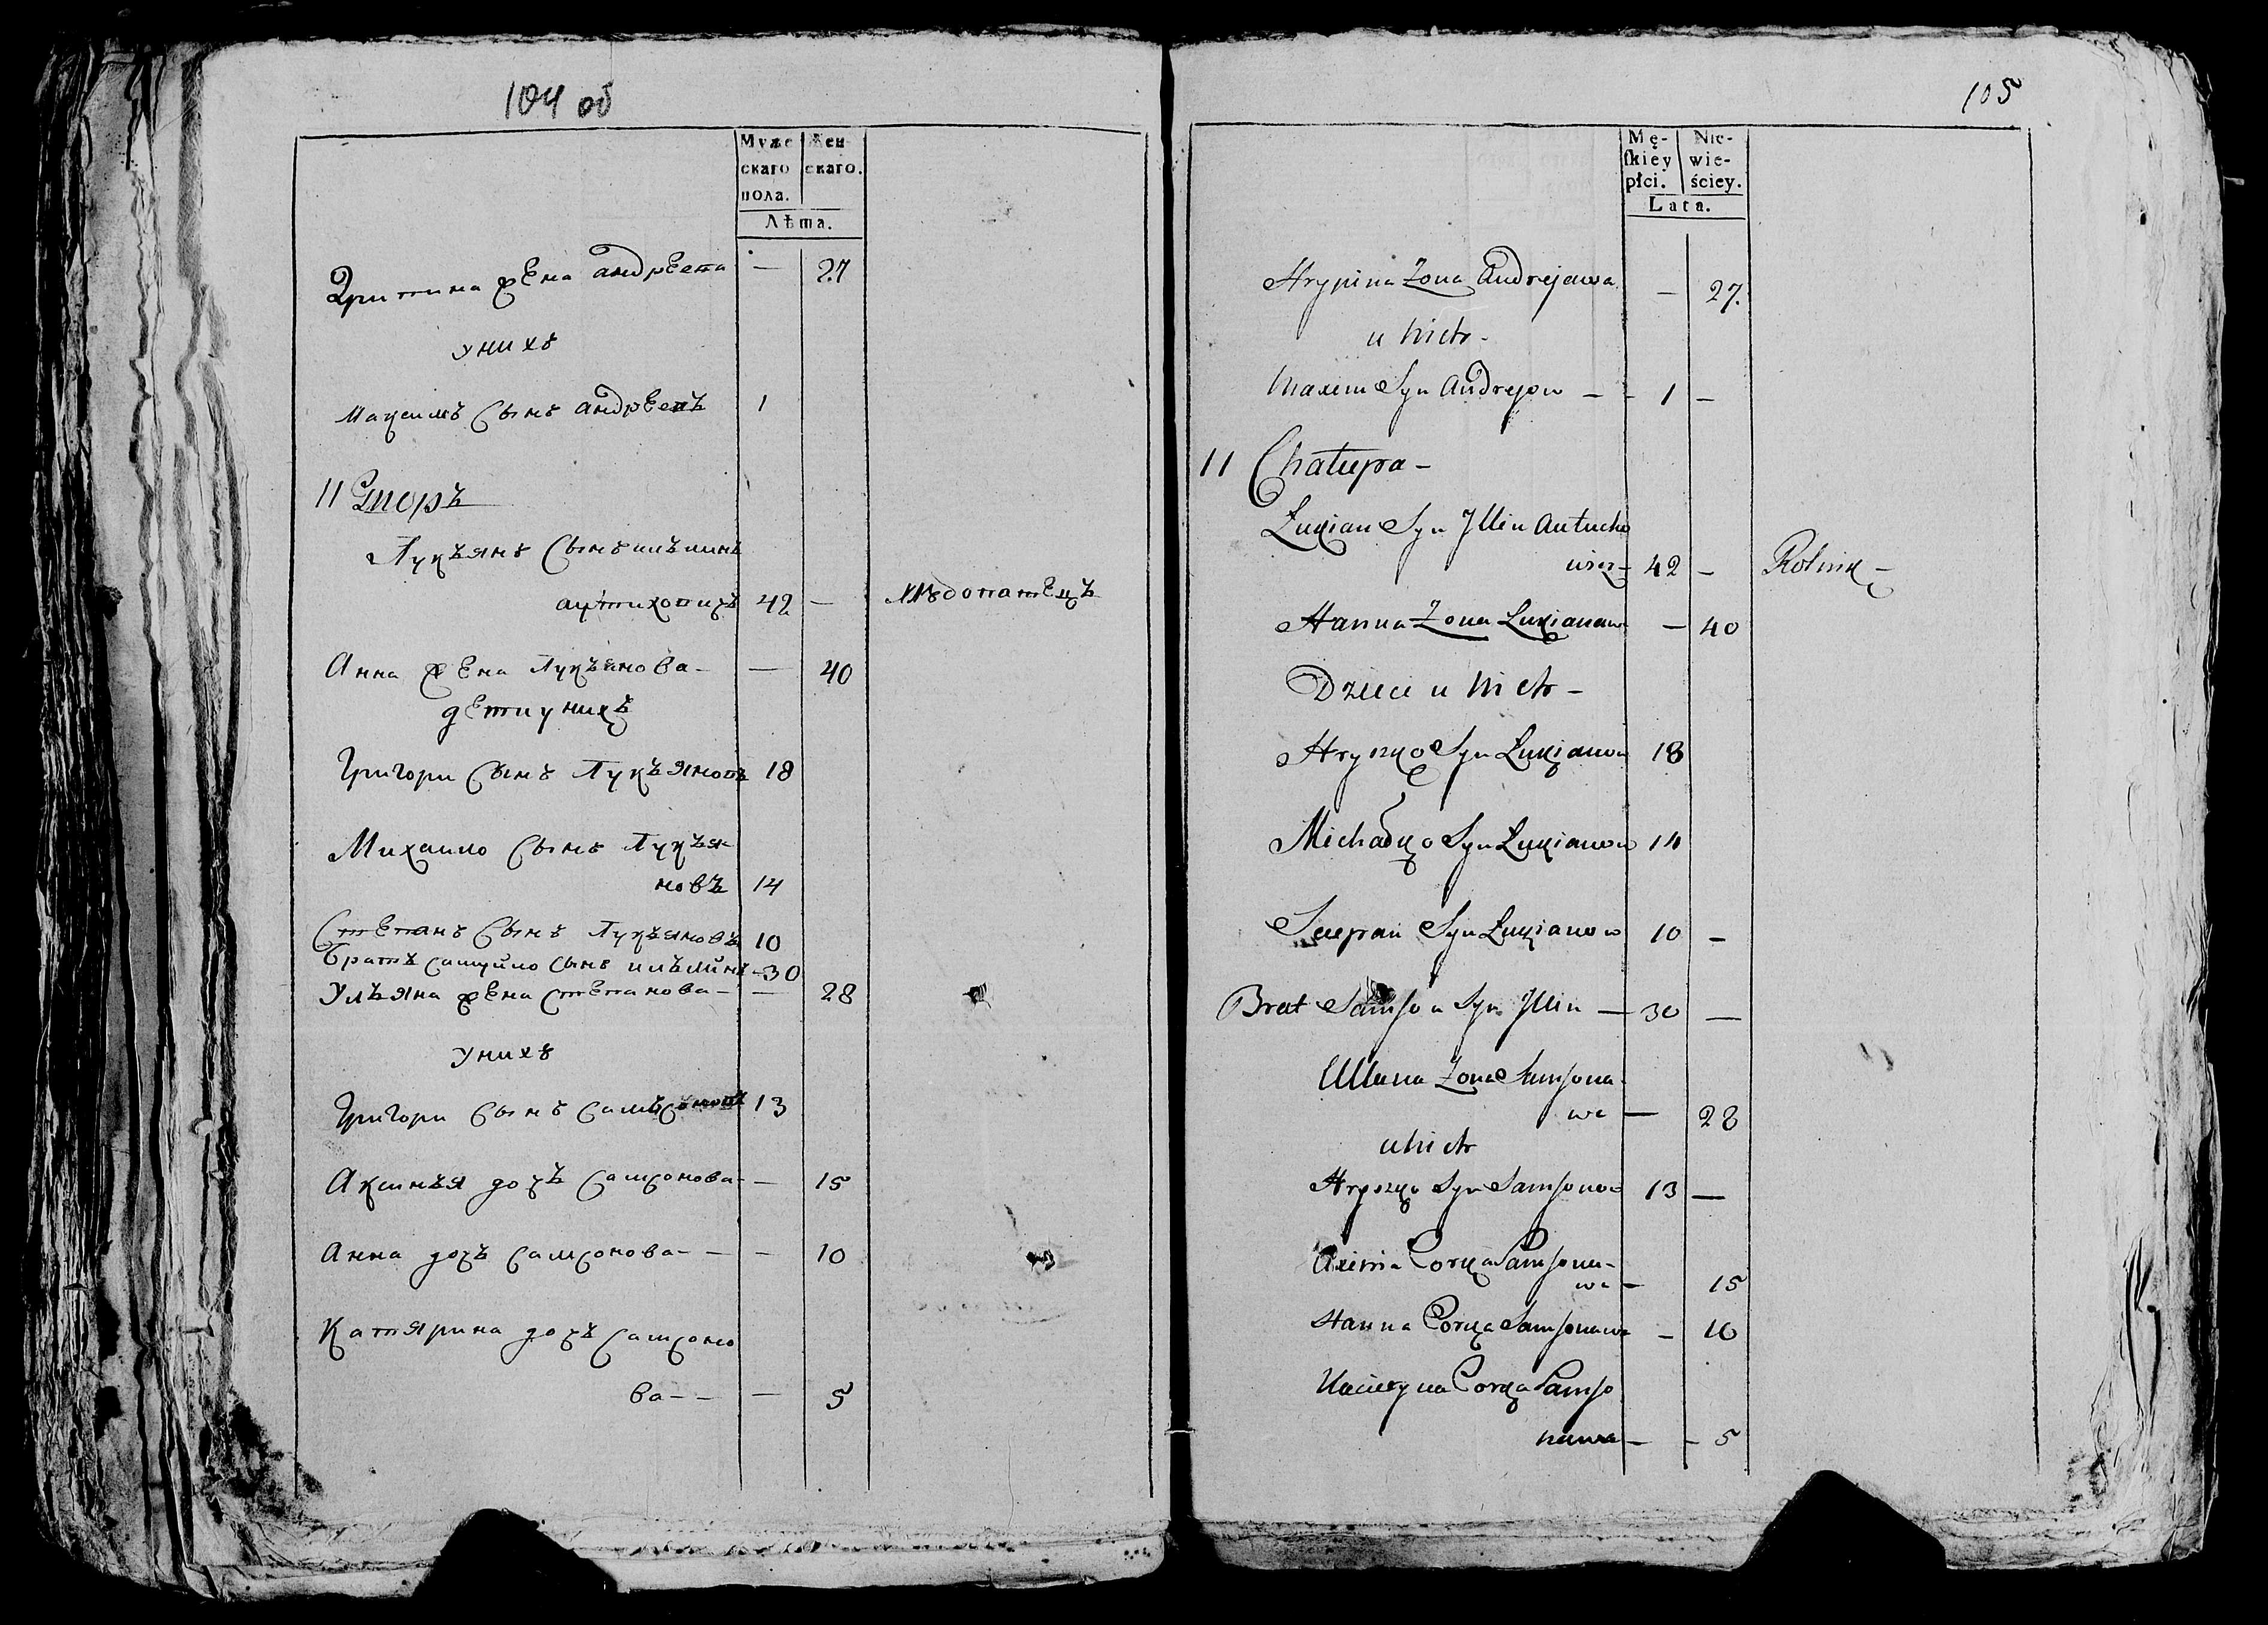 104 об
Муже Жен
скаго скаго.
пола.
Лѣта.
Грипина жена андреева — 27
у нихъ
Максимъ сынъ андреевъ 1
11 Дворъ
Лукъянъ сынъ ильинъ
аутиховичъ 42 — хлѣбопашецъ
Анна жена лукъянова — — 40
дети у нихъ
Григори сынъ Лукъяновъ 18
Михаило сынъ Лукъя
новъ 14
Степанъ сынъ Лукъяновъ 10
братъ самуйло сынъ ильинъ - 30
Ульяна жена степанова — — 28
у нихъ
Григори сынъ самсоновъ 13
Аксинья дочъ самсонова - — 15
Анна дочъ самсонова - - - 10
Катярина дочъ самсоно
ва - - — 5
105
Mę- Nie-
skiey wie-
płci. ściey.
Lata.
Hrypina Zona Andrejewa — 27.
u nich -
Maxim Syn Andrejow - - 1 -
11 Chałupa -
Łukian Syn Illin Antucho
wicz - 42 - Rolnik -
Hanna Zona Łukianowa - 40
Dzieci u nich -
Hryszko Syn Łukianow 18
Michałko Syn Łukianow 14
Sciepan Syn Łukianow 10 -
Brat Samson Syn Illin — 30 —
Ullana Zona Samsona-
wa — 28
u nich
Hryszko Syn Samsonow 13 —
Axinia Corka Samsona-
wa - 15
Hanna Corka Samsonawa - 10
Kacieryna Corka Samso
nawa - - 5